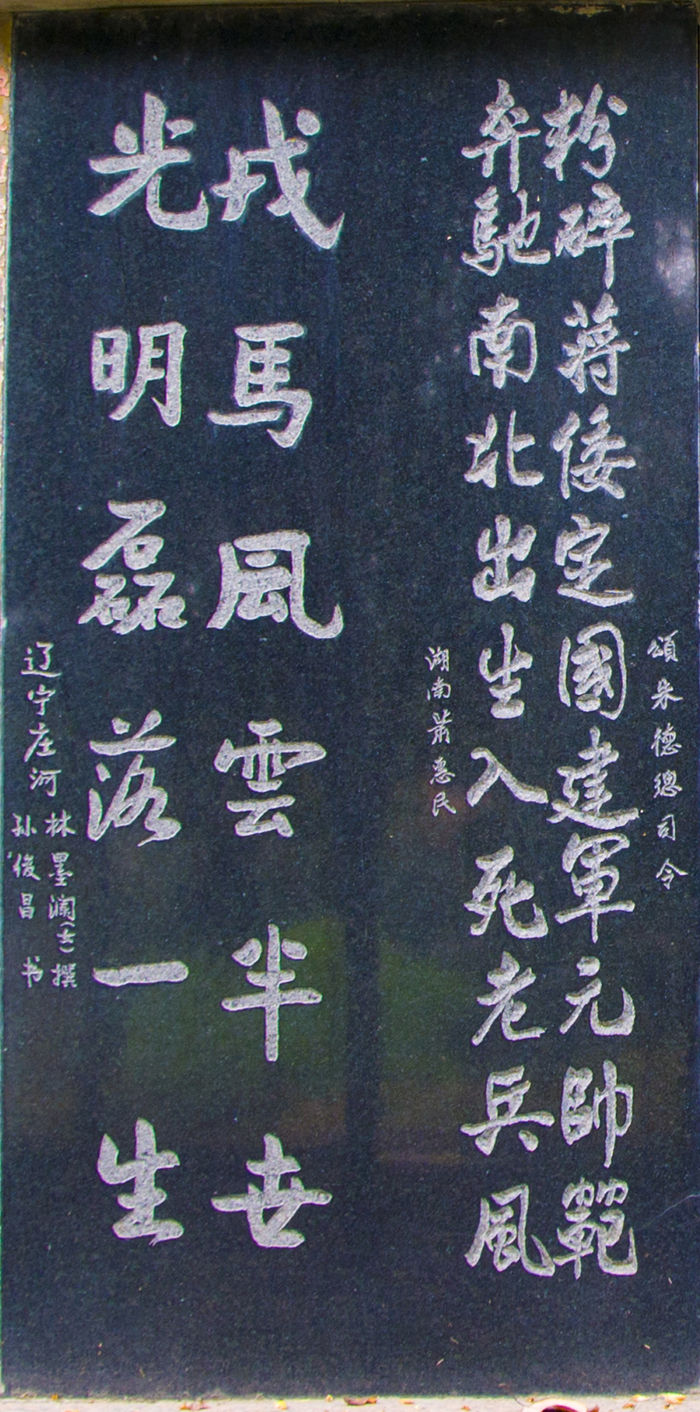 頌朱德總司令
粉碎蔣倭定國建軍元帥範
奔馳南北出生入死老兵風
湖南蕭惠民
戎馬風雲半世
光明磊落一生
辽宁庄河
林墨澜(女)撰
孙俊昌 书